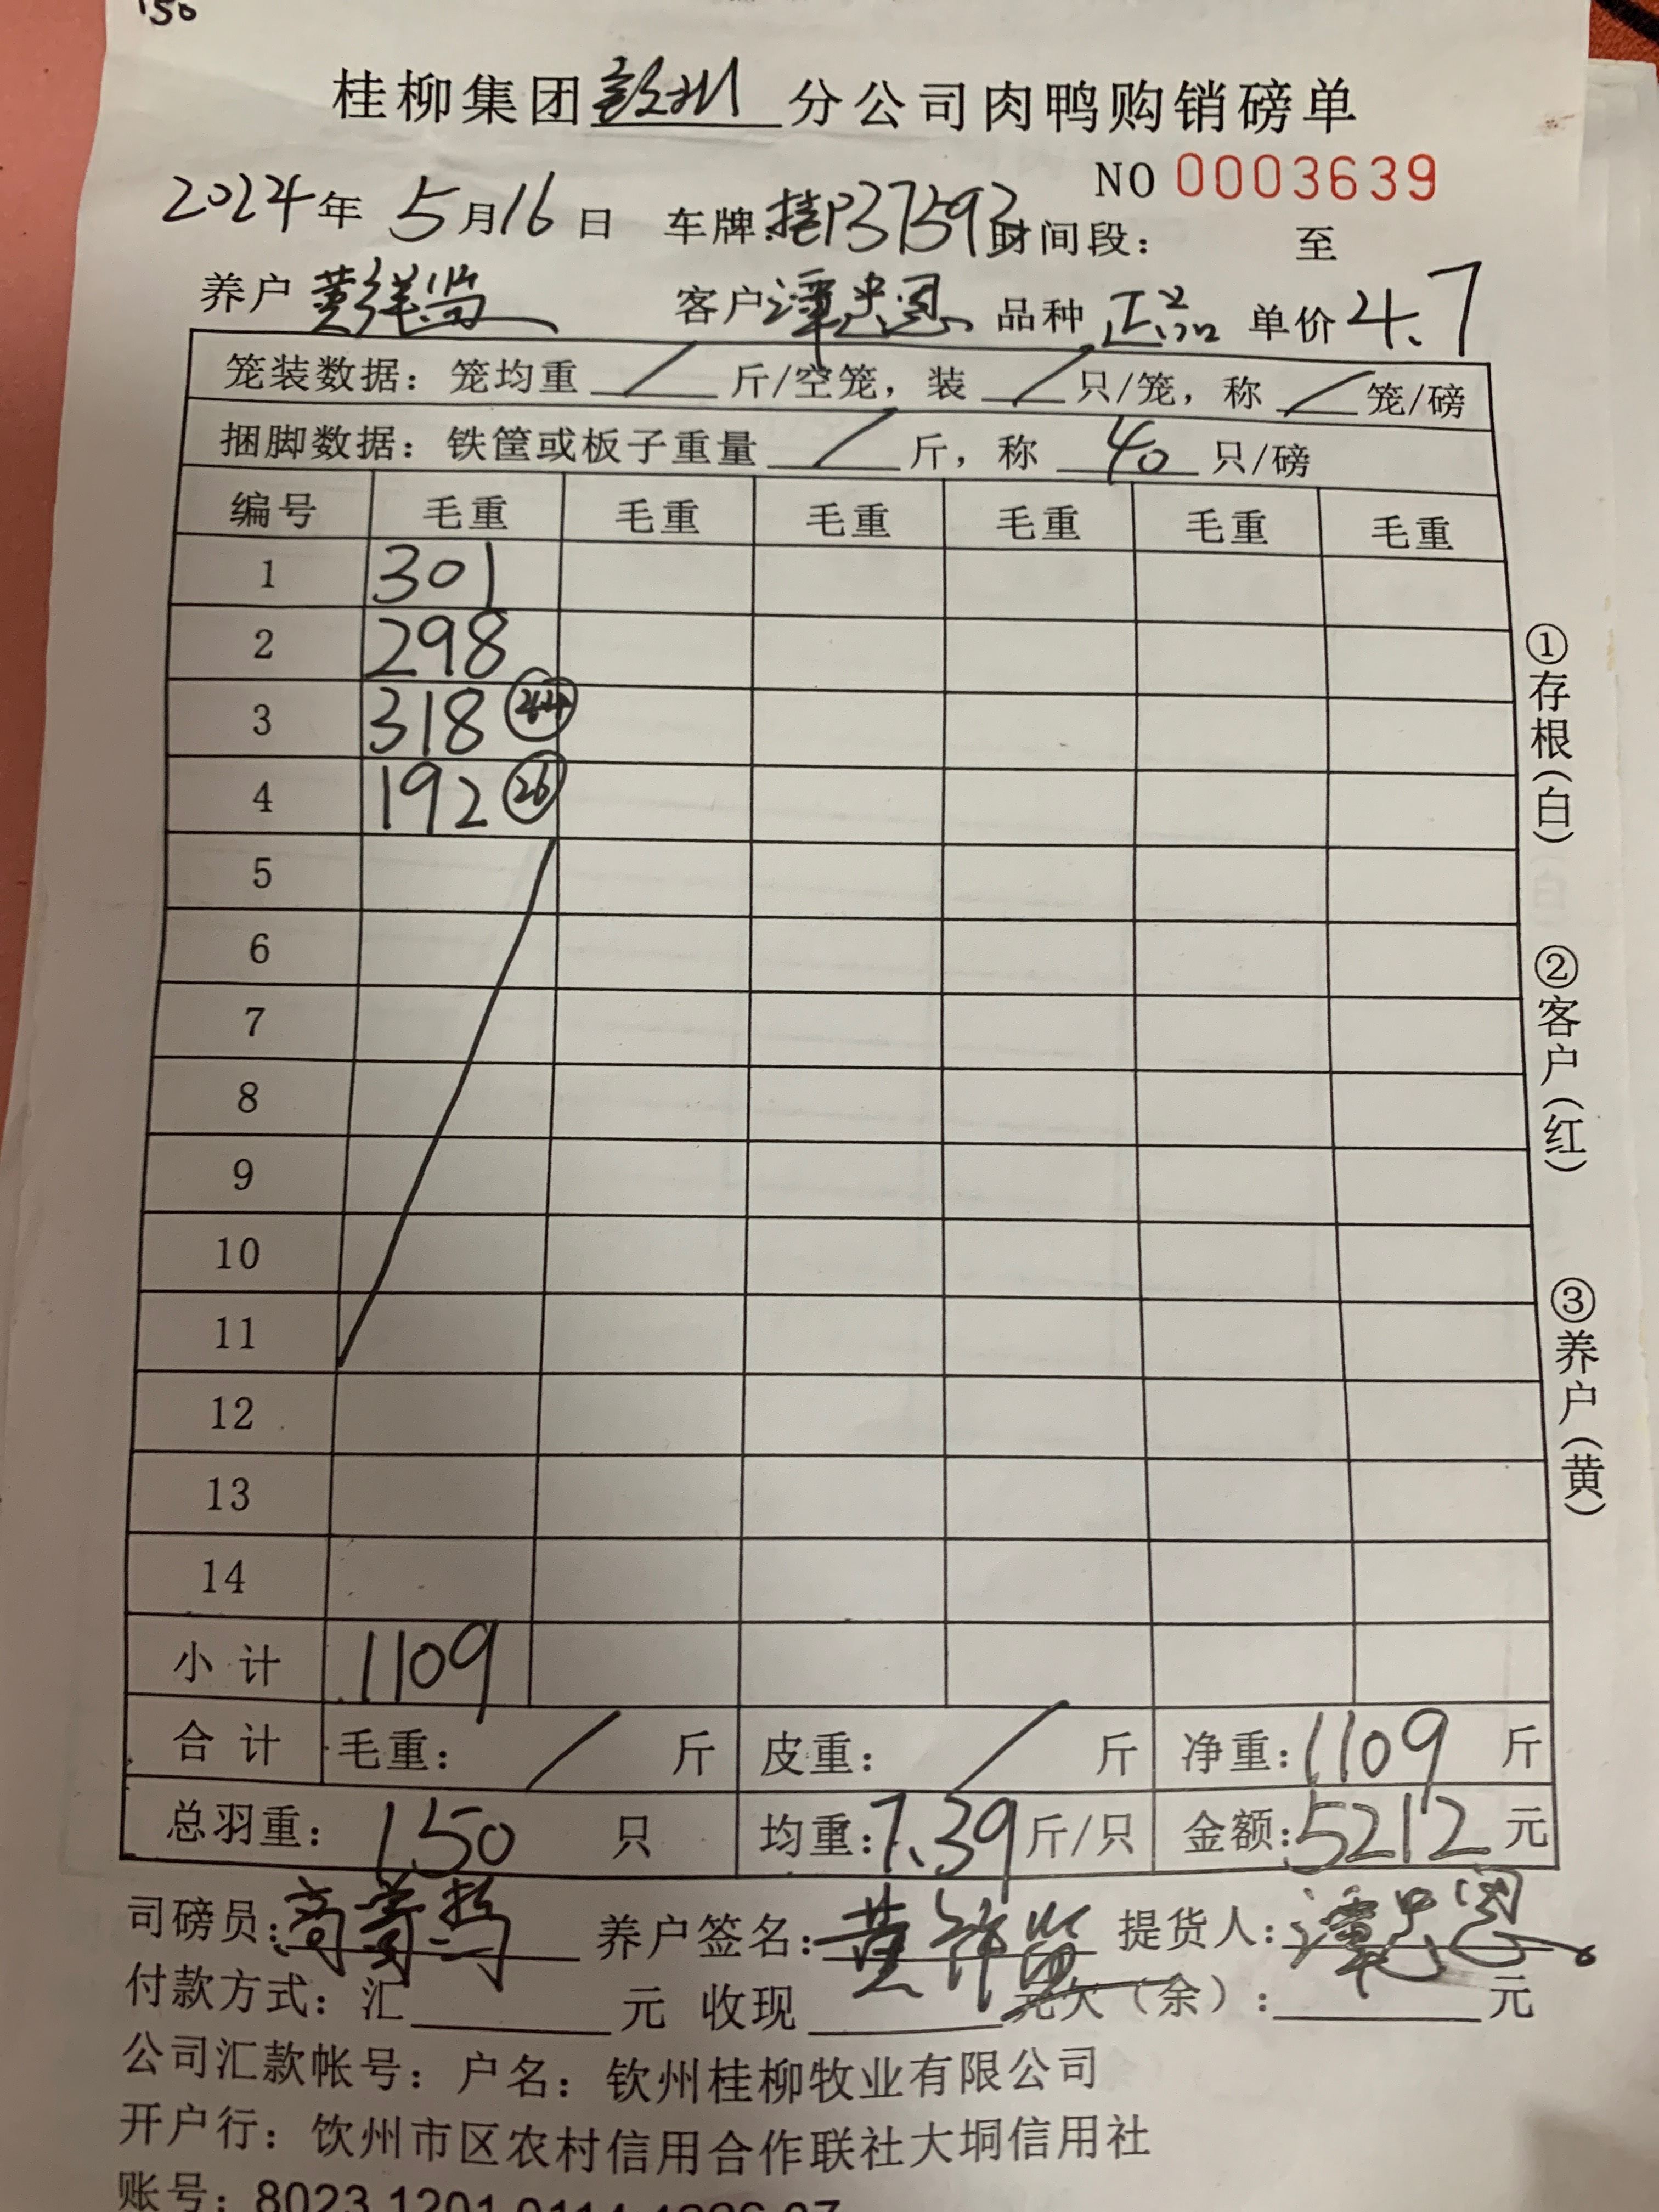 150
桂柳集团钦州分公司肉鸭购销磅单
NO 0003639
2024年 5月16日 车牌:桂P37593 时间段: 至
养户 黄祥 客户 谭忠恩 品种 正品 单价 4.7
笼装数据: 笼均重 / 斤/空笼, 装 / 只/笼, 称 / 笼/磅
捆脚数据: 铁筐或板子重量 / 斤, 称 40 只/磅
编号 毛重 毛重 毛重 毛重 毛重 毛重
1 301
2 298
3 318 44
4 192 26
5
6
7
8
9
10
11
12
13
14
小计 1109
合计 毛重: / 斤 皮重: / 斤 净重: 1109 斤
总羽重: 150 只 均重: 7.39 斤/只 金额: 5212 元
司磅员: 养户签名: 黄祥 提货人: 谭忠恩
付款方式: 汇 元 收现 元欠(余): 元
公司汇款帐号: 户名: 钦州桂柳牧业有限公司
开户行: 饮州市区农村信用合作联社大垌信用社
账号: 8023 1201 0114
①存根(白)
②客户(红)
③养户(黄)